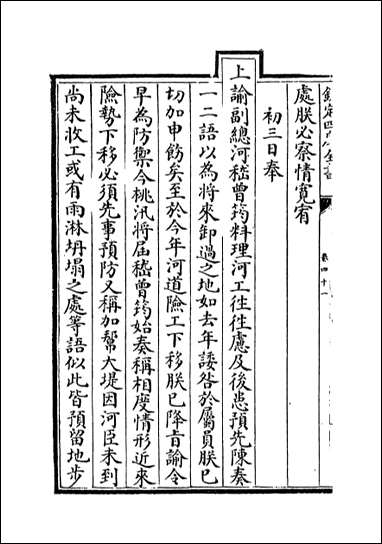 欽定四庫全書
卷四十一
處朕必察情寛宥
初三日奉
上諭副總河嵇曾筠料理河工往往慮及後患預先陳奏
一二語以為將來卸過之地如去年諉咎於屬員朕已
切加申飭矣至於今年河道險工下移朕已降㫖諭令
早為防禦今桃汛將屆嵇曾筠始奏稱相度情形近來
險勢下移必須先事預防又稱加幫大堤因河臣未到
尚未收工或有雨淋坍塌之處等語似此皆預留地步